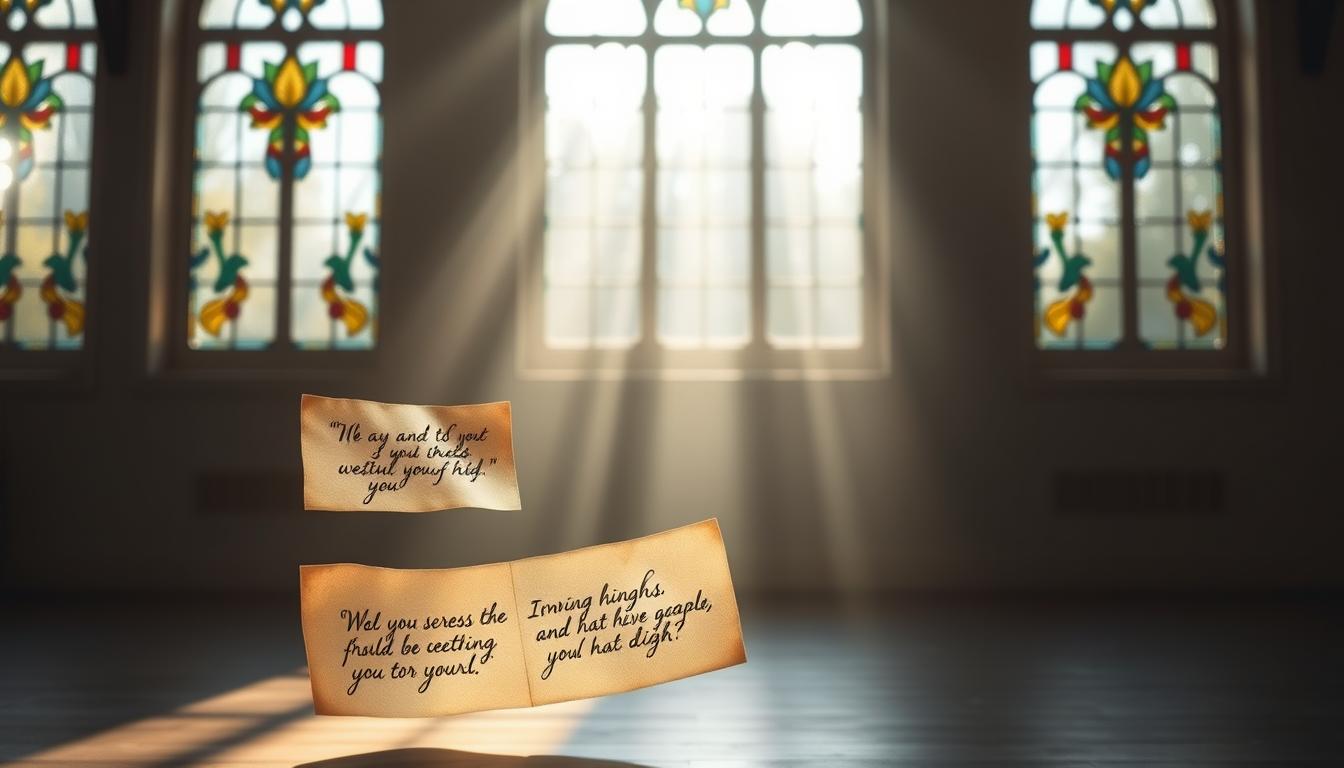 "We ay and td yout
s yout thects
westul yousf hid."
you.
"Wel you seress the
fhsuld be ceetling
you tor yourl.
Imving hinghs.
and hat hive gaaple,
youl hat digh?